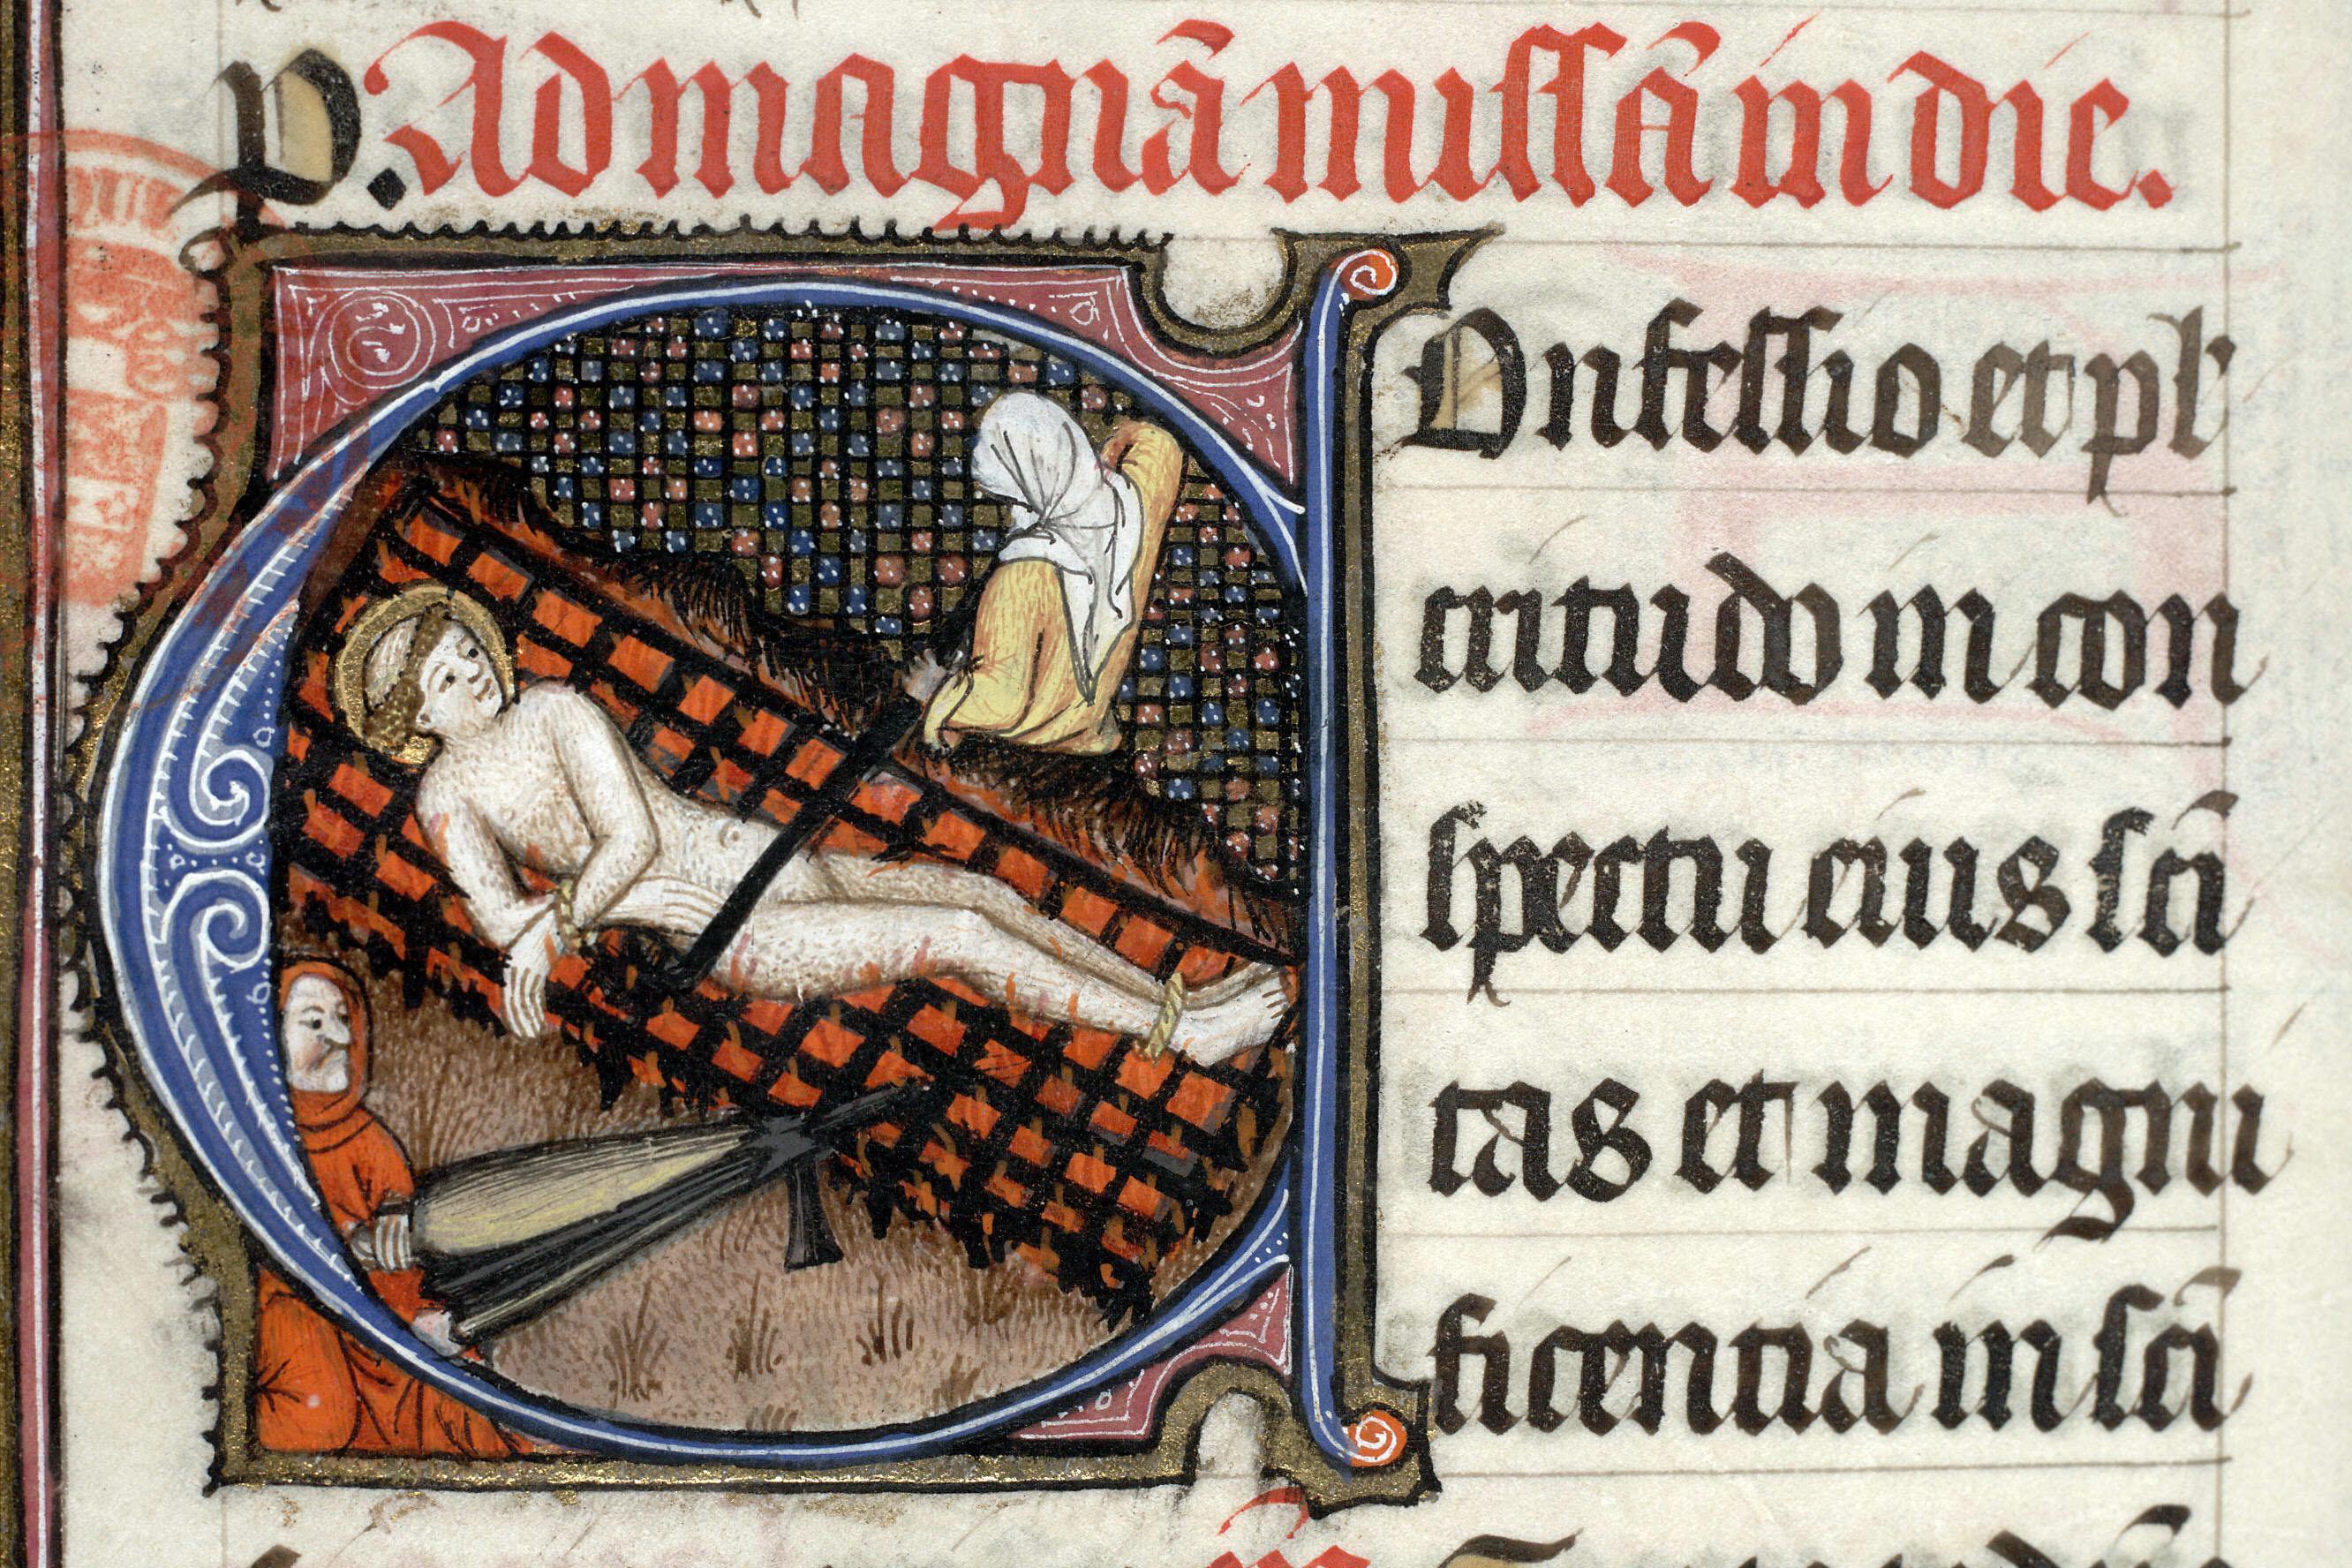 p. Ad magnā missā in die.
Onfessio et pl
critudo in con
spectu eius sci
tas et magni
ficentia in sci